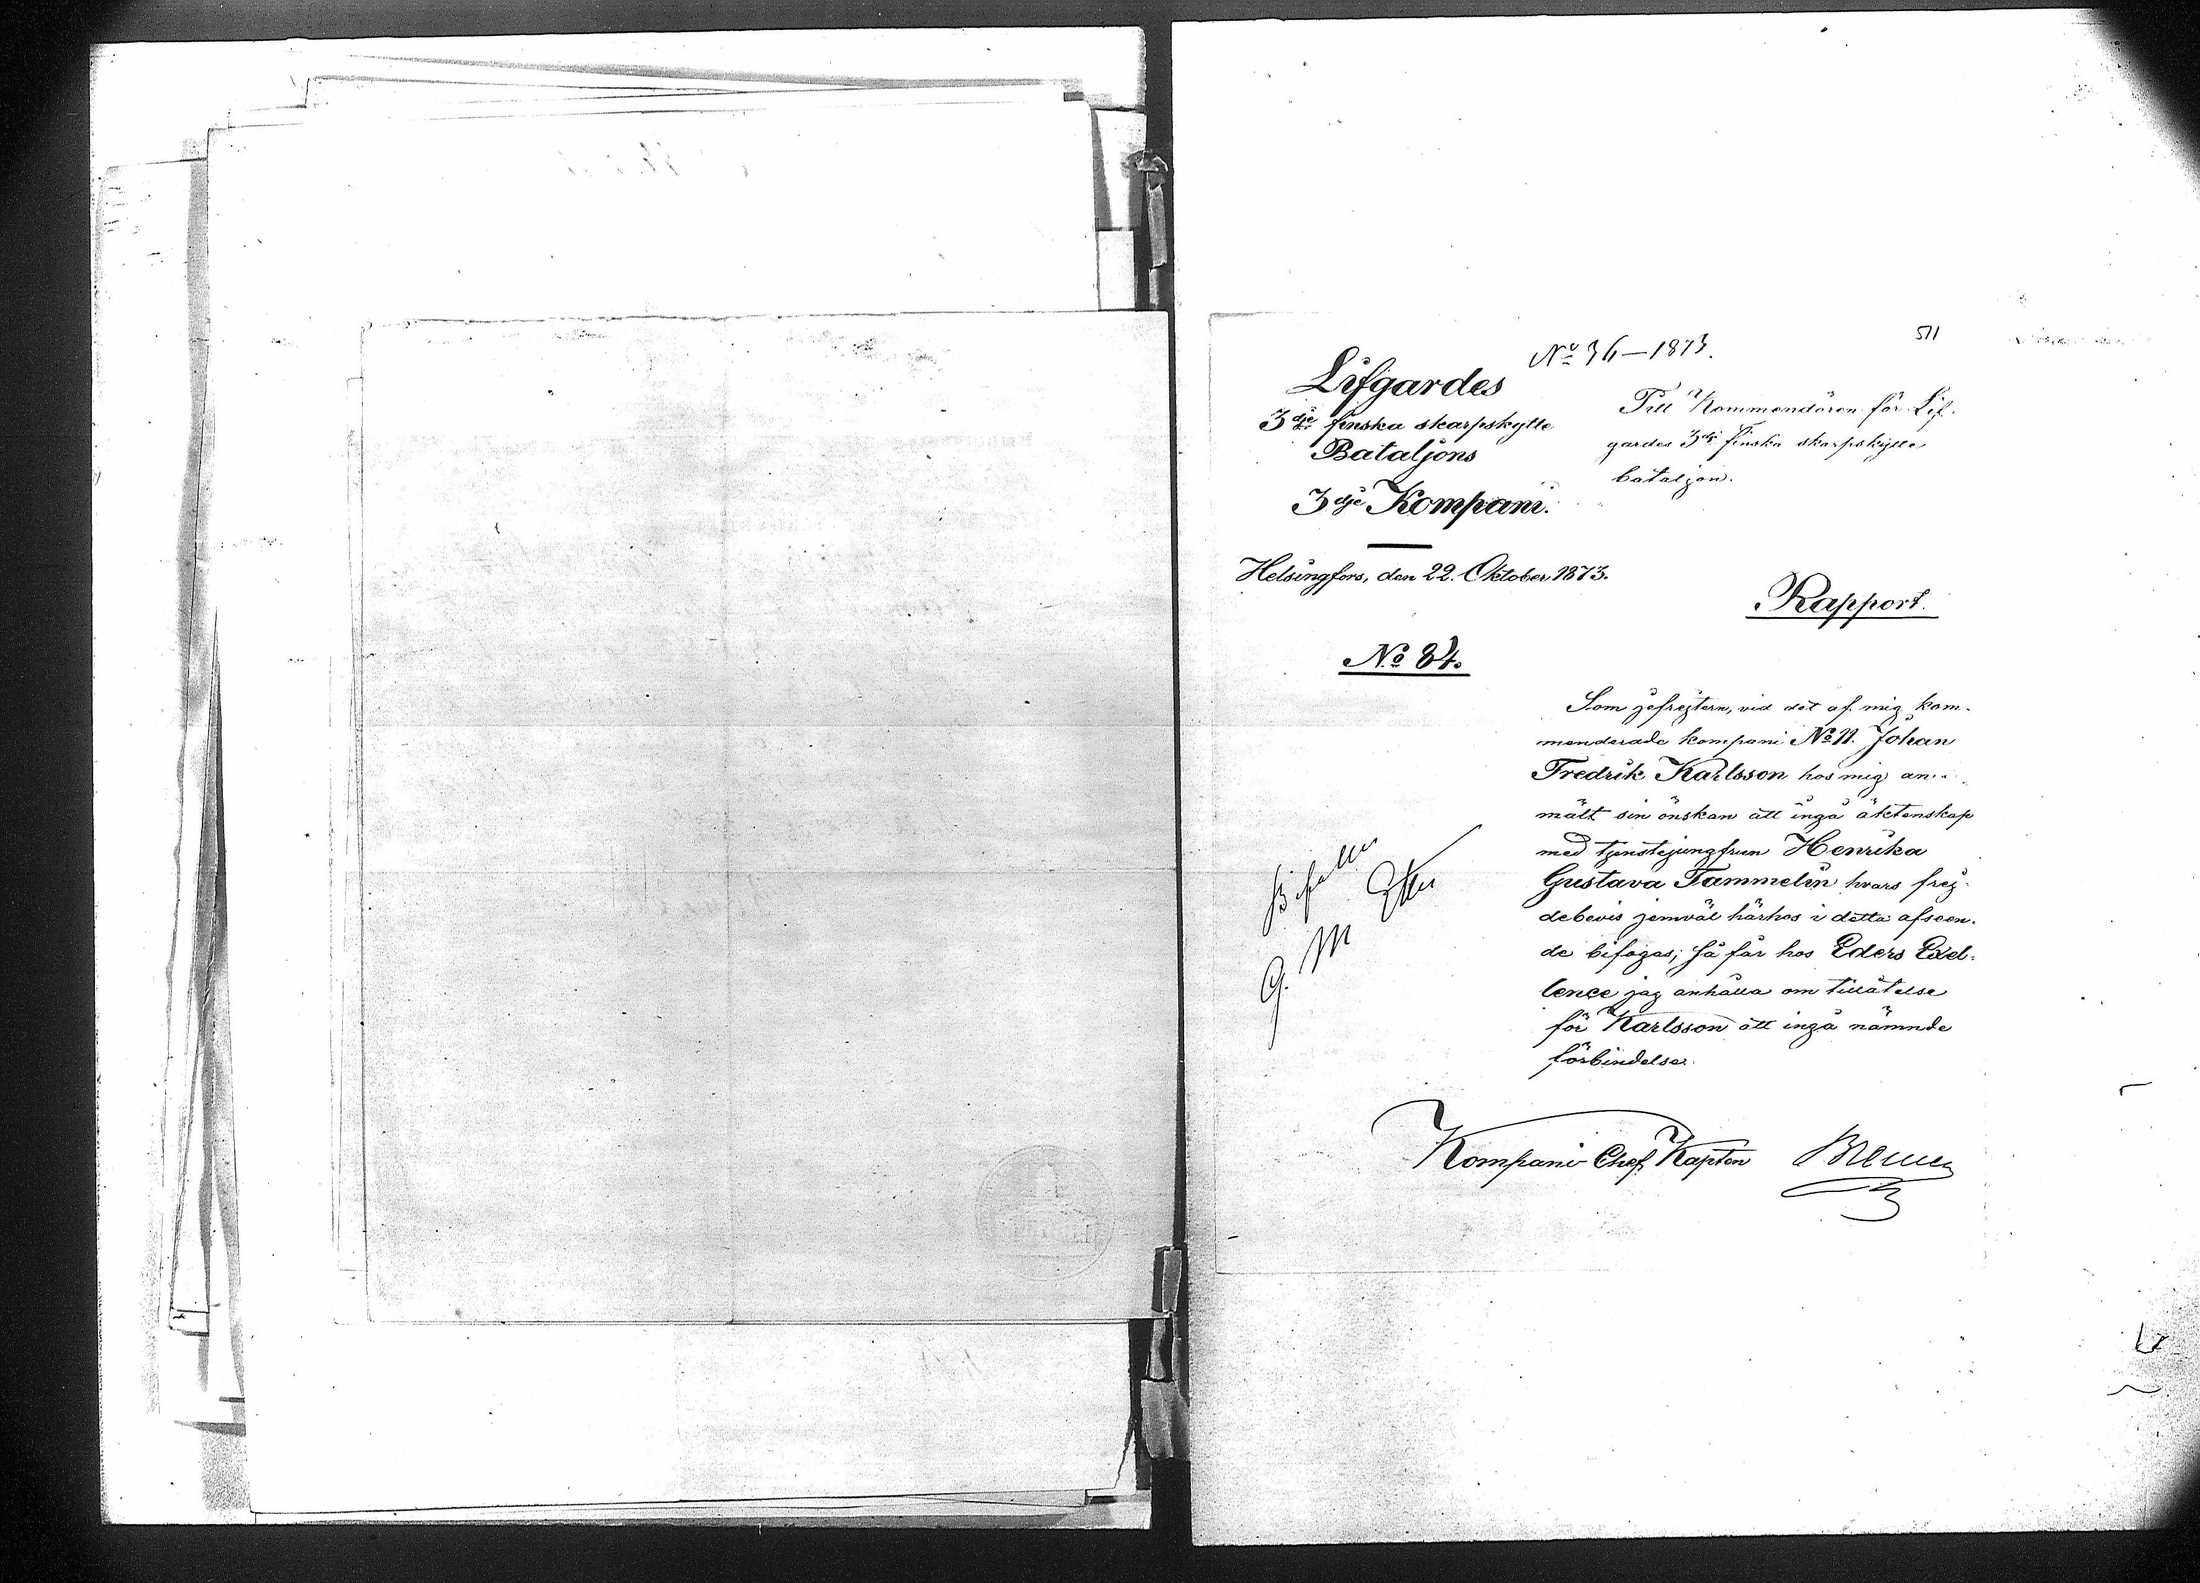 511
No 36 — 1873.
Lifgardes
3dje finska skarpskytte
Bataljons
3dje Kompani.
Helsingfors, den 22. Oktober 1873.
No 84.
Till Kommendören för Lif-
gardes 3dje finska skarpskytte
bataljon.
Rapport.
Som gefrejtern, vid det af mig kom-
menderade kompani No 11. Johan
Fredrik Karlsson hos mig an-
mält sin önskan att ingå äktenskap
med tjenstejungfrun Henrika
Gustava Tammelin hvars frej-
debevis jemväl härhos i detta afseen-
de bifogas; så får hos Eders Exel-
lence jag anhålla om tillåtelse
för Karlsson att ingå nämnde
förbindelse.
Bifalles
G. M
Kompani Chef, Kapten